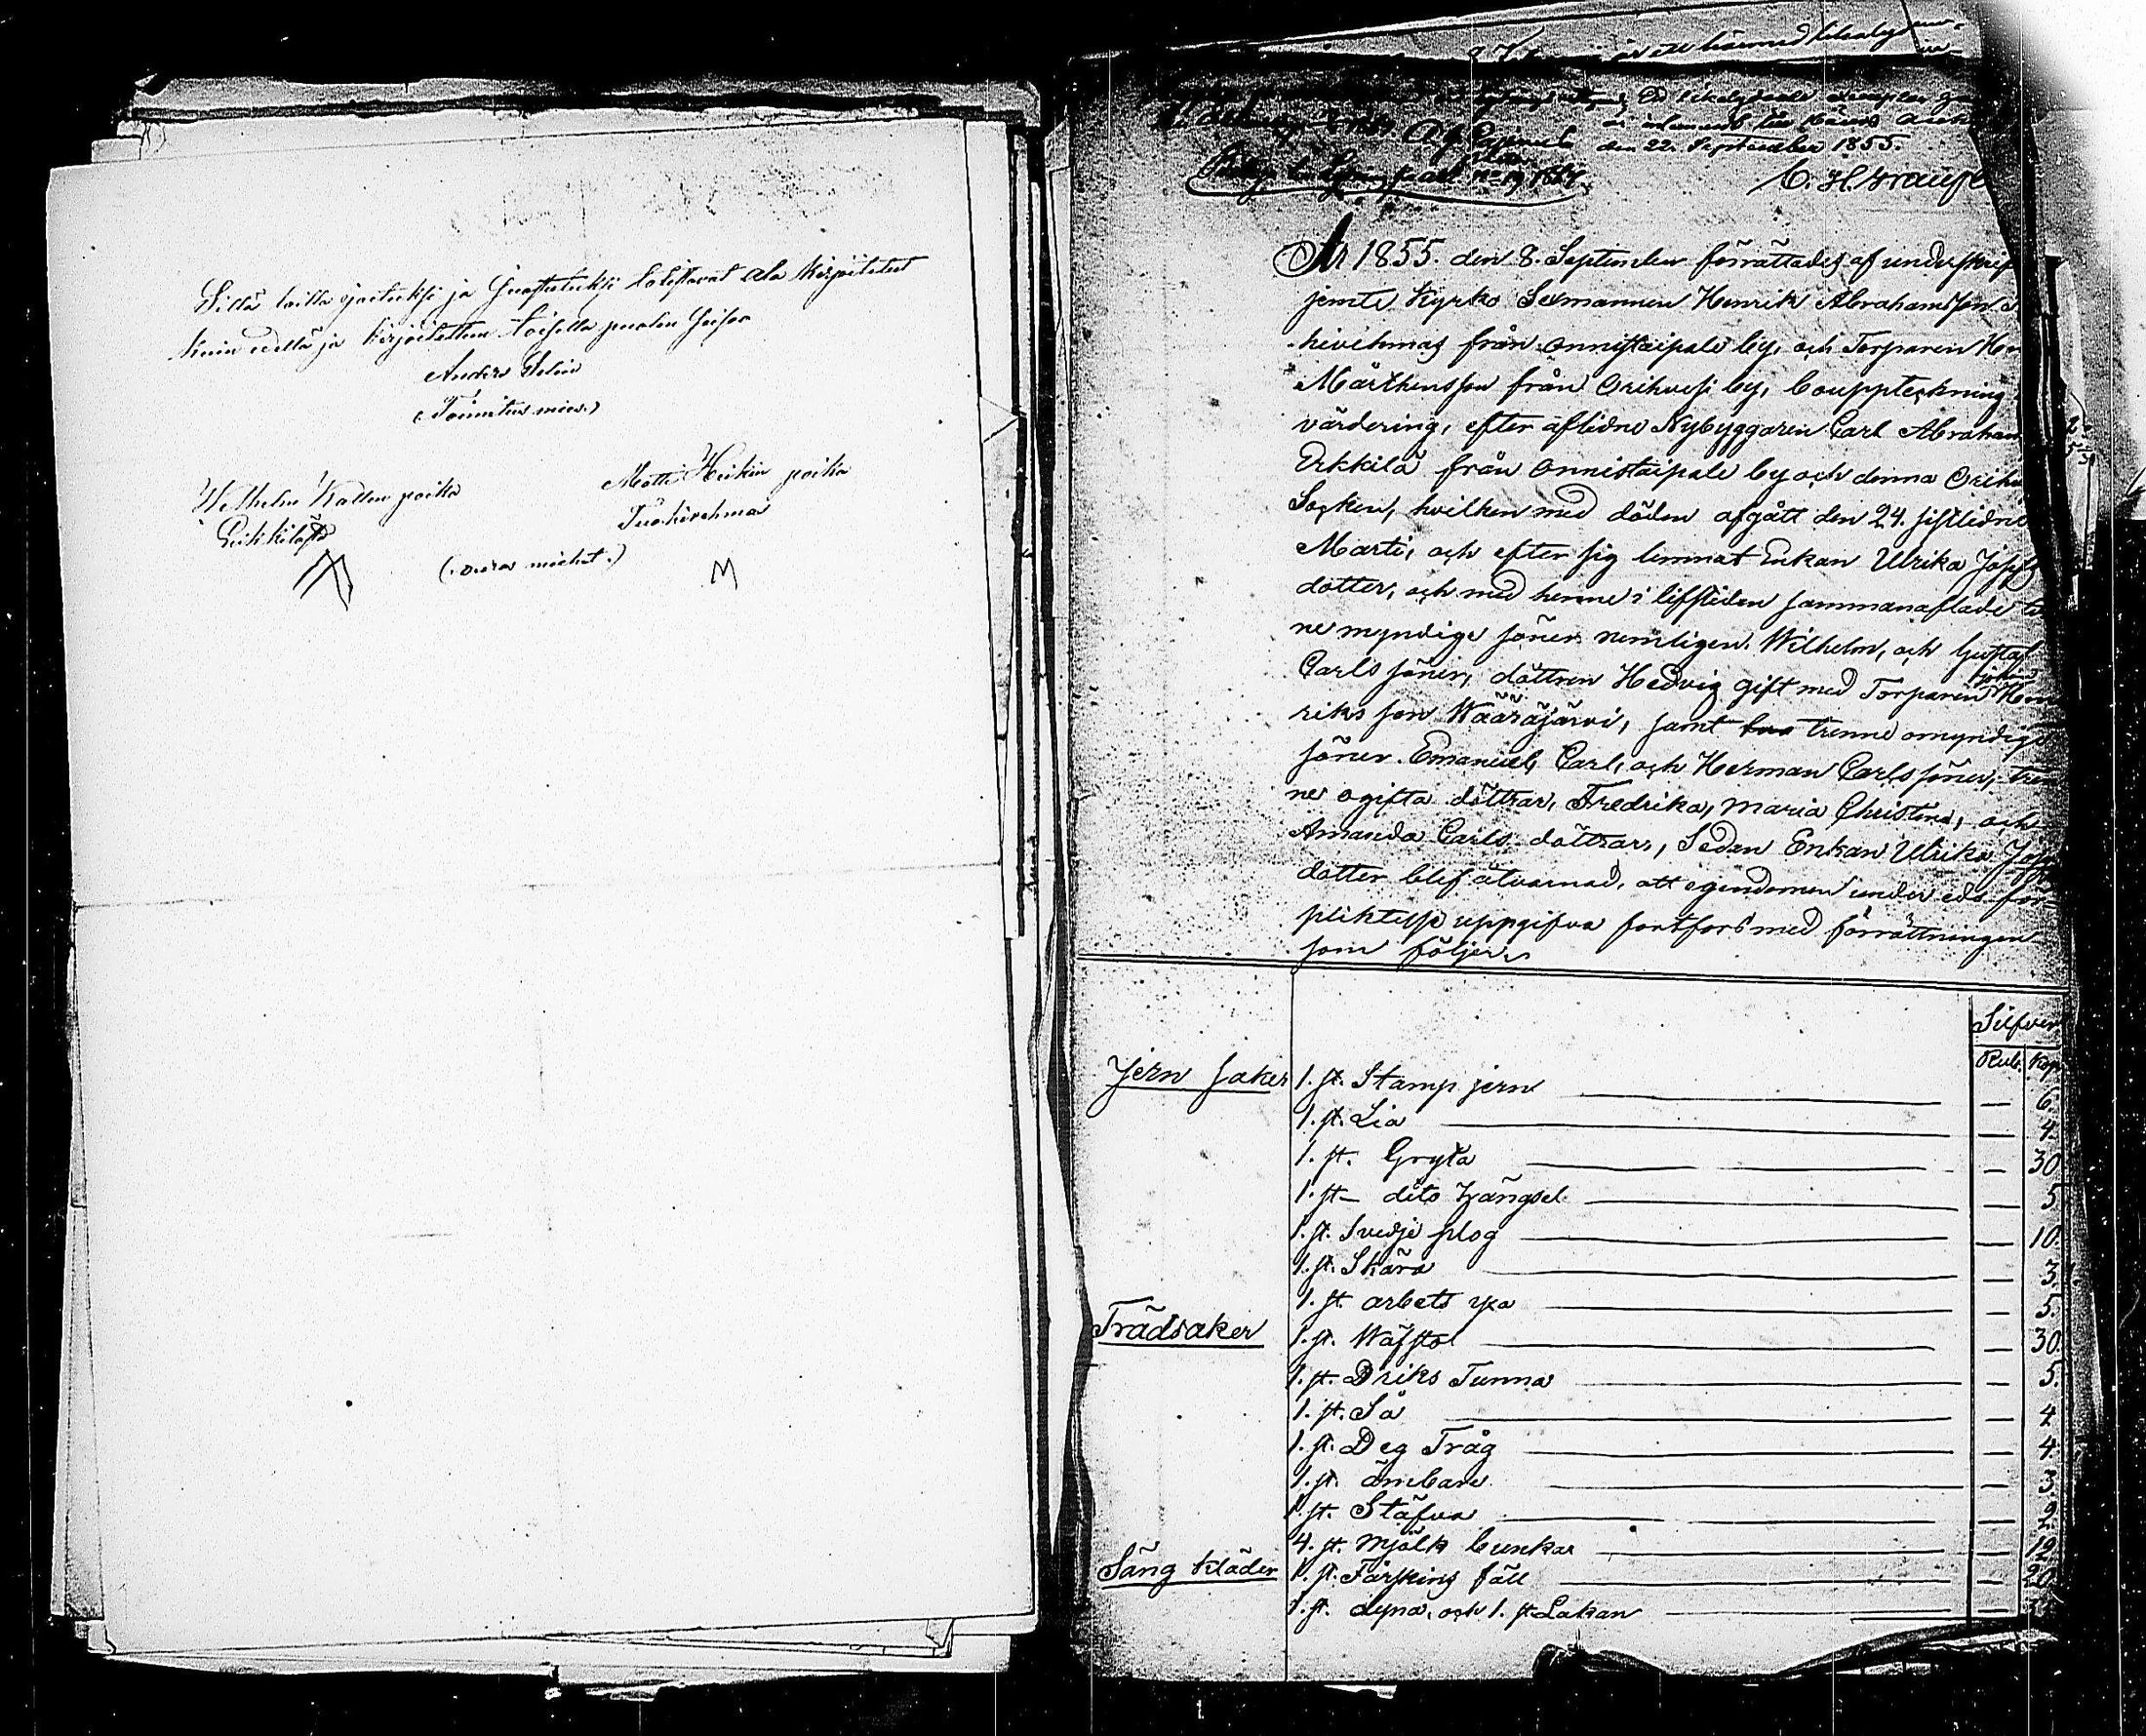 Sillä lailla ja ala kirjoitetut
kuin edellä ja kirjoitettu toisella puolen
Anders Selin
(Toimitus mies.)
Wilhelm Kallen poika
Erkkilästä
Matti Heikin poika
(.miehet.)
den 22. September 1855.
År 1855. den 8. September förrättades af underskrif
jemte Kyrko Sexmannen Henrik Abrahamsson
från Onnistaipale by, och Torparen Hen
Mårthensson från Orihvesi by, bouppteckning
värdering, efter aflidne Nybyggaren Carl Abraham
Erkkilä från Onnistaipale by och denna Orih
Socken, hvilken med döden afgått den 24. sistlidne
Marti, och efter sig lemnat Enkan Ulrika Josefs
dotter, och med henne i lifstiden sammanaflade tve
ne myndige söner nemligen. Wilhelm, och Gustaf
Carls söner, dottren Hedvig gift med Torparen Johan Hen
riks son Wääräjärvi, samt trenne omyndige
söner. Emanuel, Carl, och Herman Carls söner, tren
ne ogifta döttrar, Fredrika, Maria Christina, och
Amanda Carls döttrar, Sedan Enkan Ulrika Josefs
dotter blef åtvarnad, att egendomen under eds för=
pliktelse uppgifva fortfors med förrättningen
som följer.
Silfver
Rub. Kop.
Jern saker 1. st. Stamp jern — 6.
1. st. Lia — 4.
1. st. Gryta — 30
1. st. dito hängsel — 5
1. st. Svedje plog — 10.
1. st. Skära — 3.
1. st. arbets yxa — 5.
Trädsaker 1. st. Wäfstol — 30.
1. st. Driks Tunna — 5.
1. st. Så — 4
1. st. Deg Tråg — 4.
1. st. ämbare — 3.
1. st. Stäfva — 2.
4. st. Mjölk bunkar — 12
Säng kläder 1. st. Fårskins fäll — 20
1. st. dyna, och 1. st. Lakan —